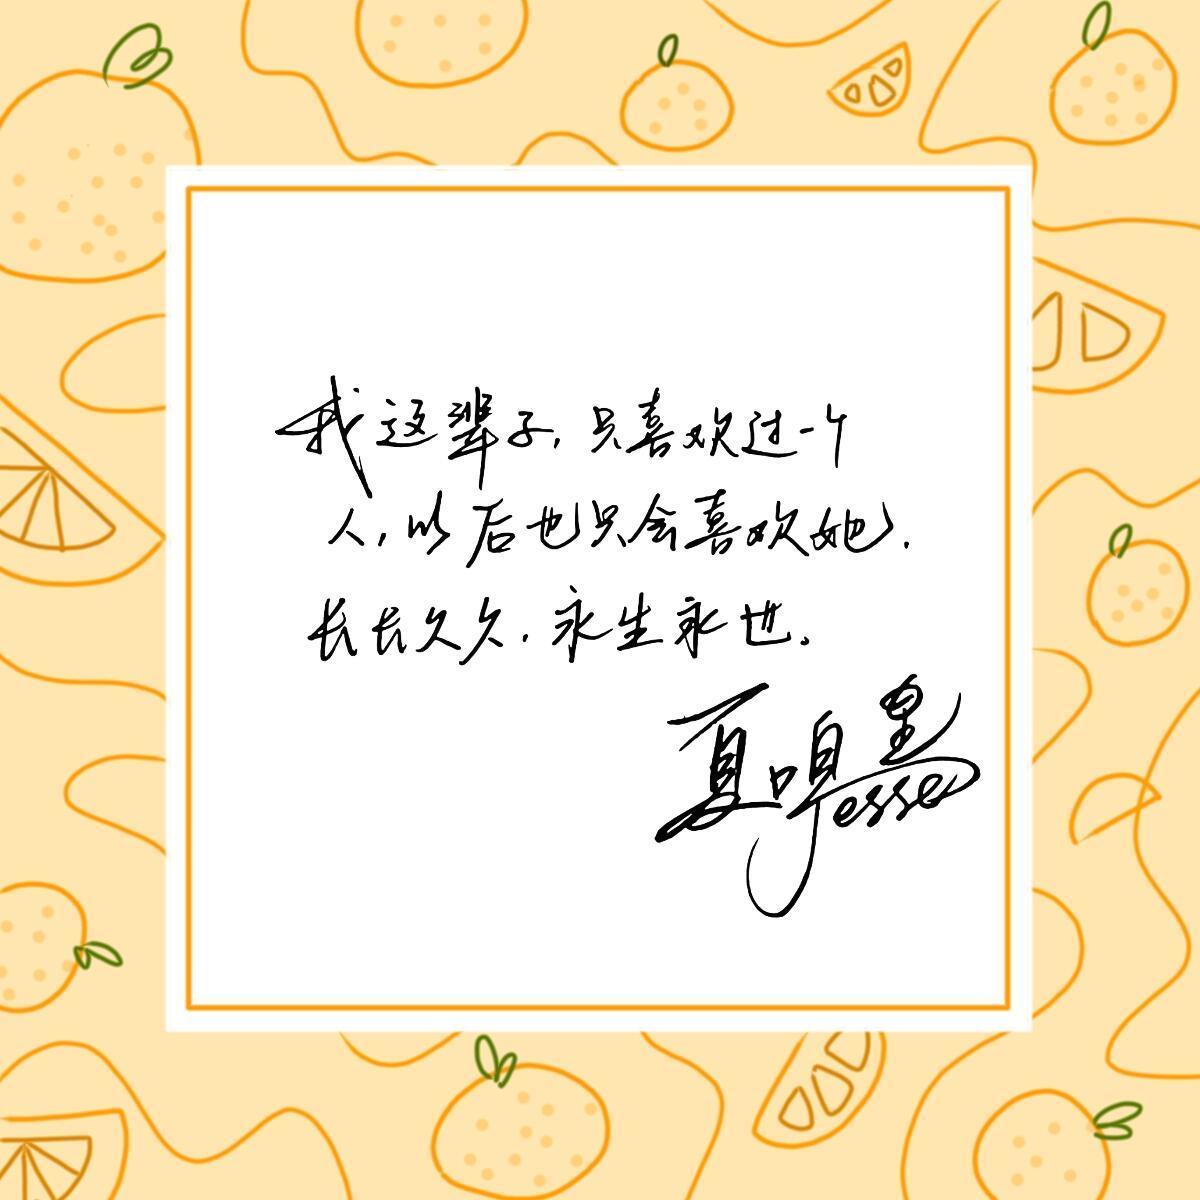 我这辈子,只喜欢过一个
人,以后也只会喜欢她.
长长久久.永生永世。
夏鸣星
Jesse